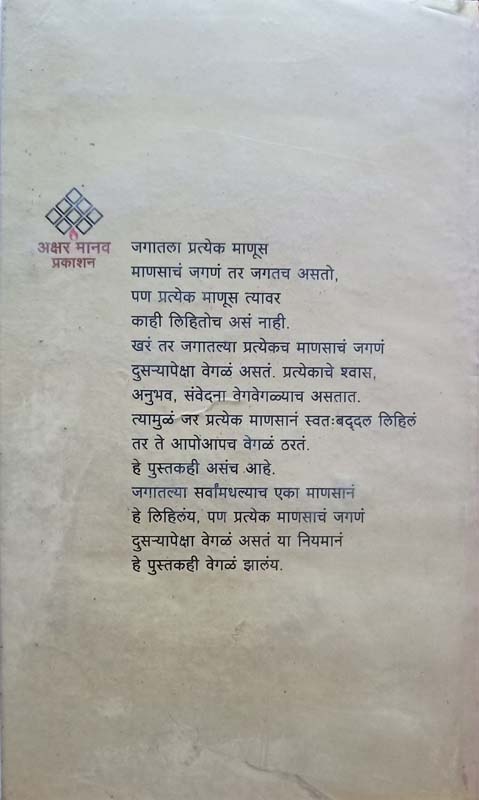 अक्षर मानव
प्रकाशन
जगातला प्रत्येक माणूस
माणसाचं जगणं तर जगतच असतो,
पण प्रत्येक माणूस त्यावर
काही लिहितोच असं नाही.
खरं तर जगातल्या प्रत्येकच माणसाचं जगणं
दुसऱ्यापेक्षा वेगळं असतं. प्रत्येकाचे श्वास,
अनुभव, संवेदना वेगवेगळ्याच असतात.
त्यामुळं जर प्रत्येक माणसानं स्वतःबद्दल लिहिलं
तर ते आपोआपच वेगळं ठरतं.
हे पुस्तकही असंच आहे.
जगातल्या सर्वांमधल्याच एका माणसानं
हे लिहिलंय, पण प्रत्येक माणसाचं जगणं
दुसऱ्यापेक्षा वेगळं असतं या नियमानं
हे पुस्तकही वेगळं झालंय.